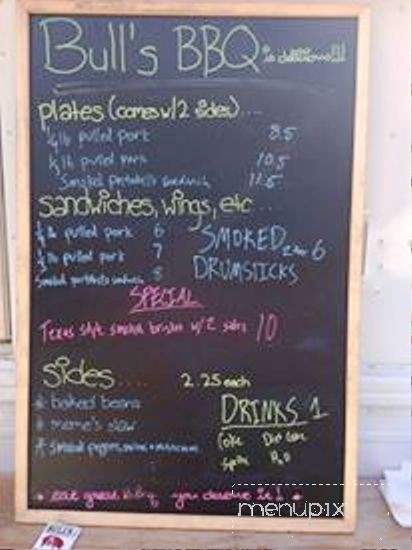 Bull's BBQ is delicious!!!
plates (comes w/ 2 sides)....
1/4 lb pulled pork 8.5
1/2 lb pulled pork 10.5
Smoked portobello sandwich 11.5
sandwiches, wings, etc...
1/4 lb pulled pork 6
1/2 lb pulled pork 7
Smoked portobello sandwich 8
SMOKED 2 for 6
DRUMSTICKS
SPECIAL
Texas style smoked brisket w/ 2 sides 10
sides.... 2.25 each
* baked beans
* meme's slaw
* smoked peppers, onions + mushrooms
DRINKS 1
Coke Diet Coke
Sprite
* eat great bbq you deserve it! *
menupix
BULL'S